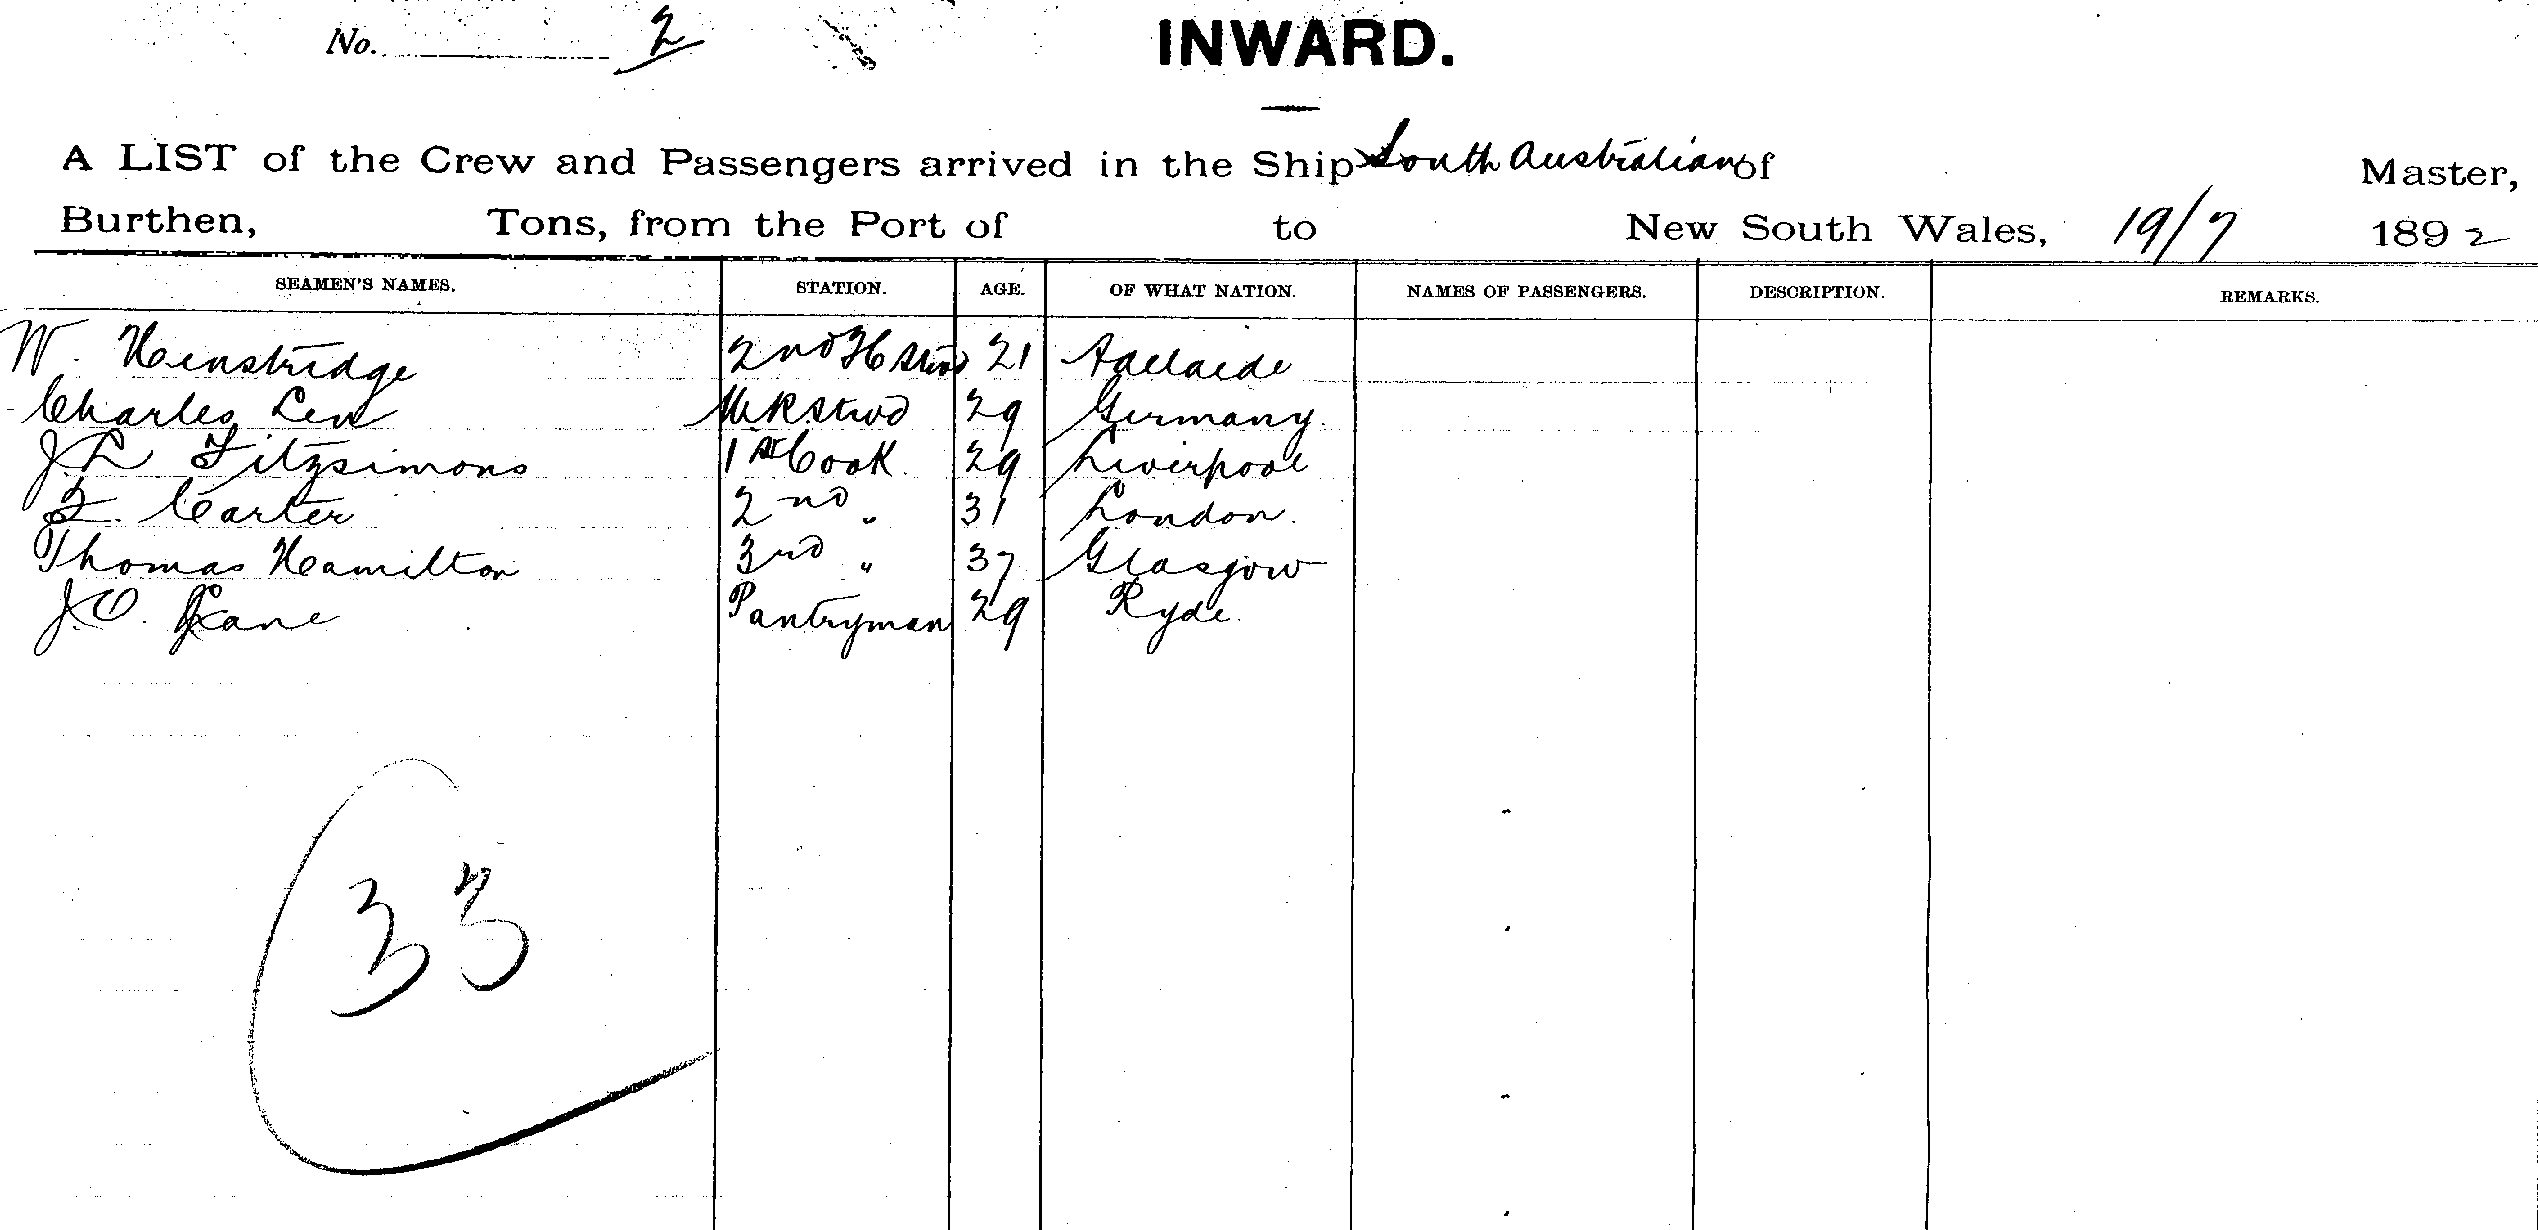 No. 2
INWARD.
A LIST of the Crew and Passengers arrived in the Ship South Australian of Master,
Burthen, Tons, from the Port of to New South Wales, 19/7 1892
SEAMEN'S NAMES. STATION. AGE. OF WHAT NATION. NAMES OF PASSENGERS. DESCRIPTION. REMARKS.
W. Henstridge 2nd H Stwd 21 Adelaide
Charles Len Stwd 29 Germany.
J. L Fitzsimons 1st Cook. 29 Liverpool
Carter 2nd " 31 London.
Thomas Hamilton 3rd " 37 Glasgow
J. O. Lane Pantryman 29 Ryde.
33